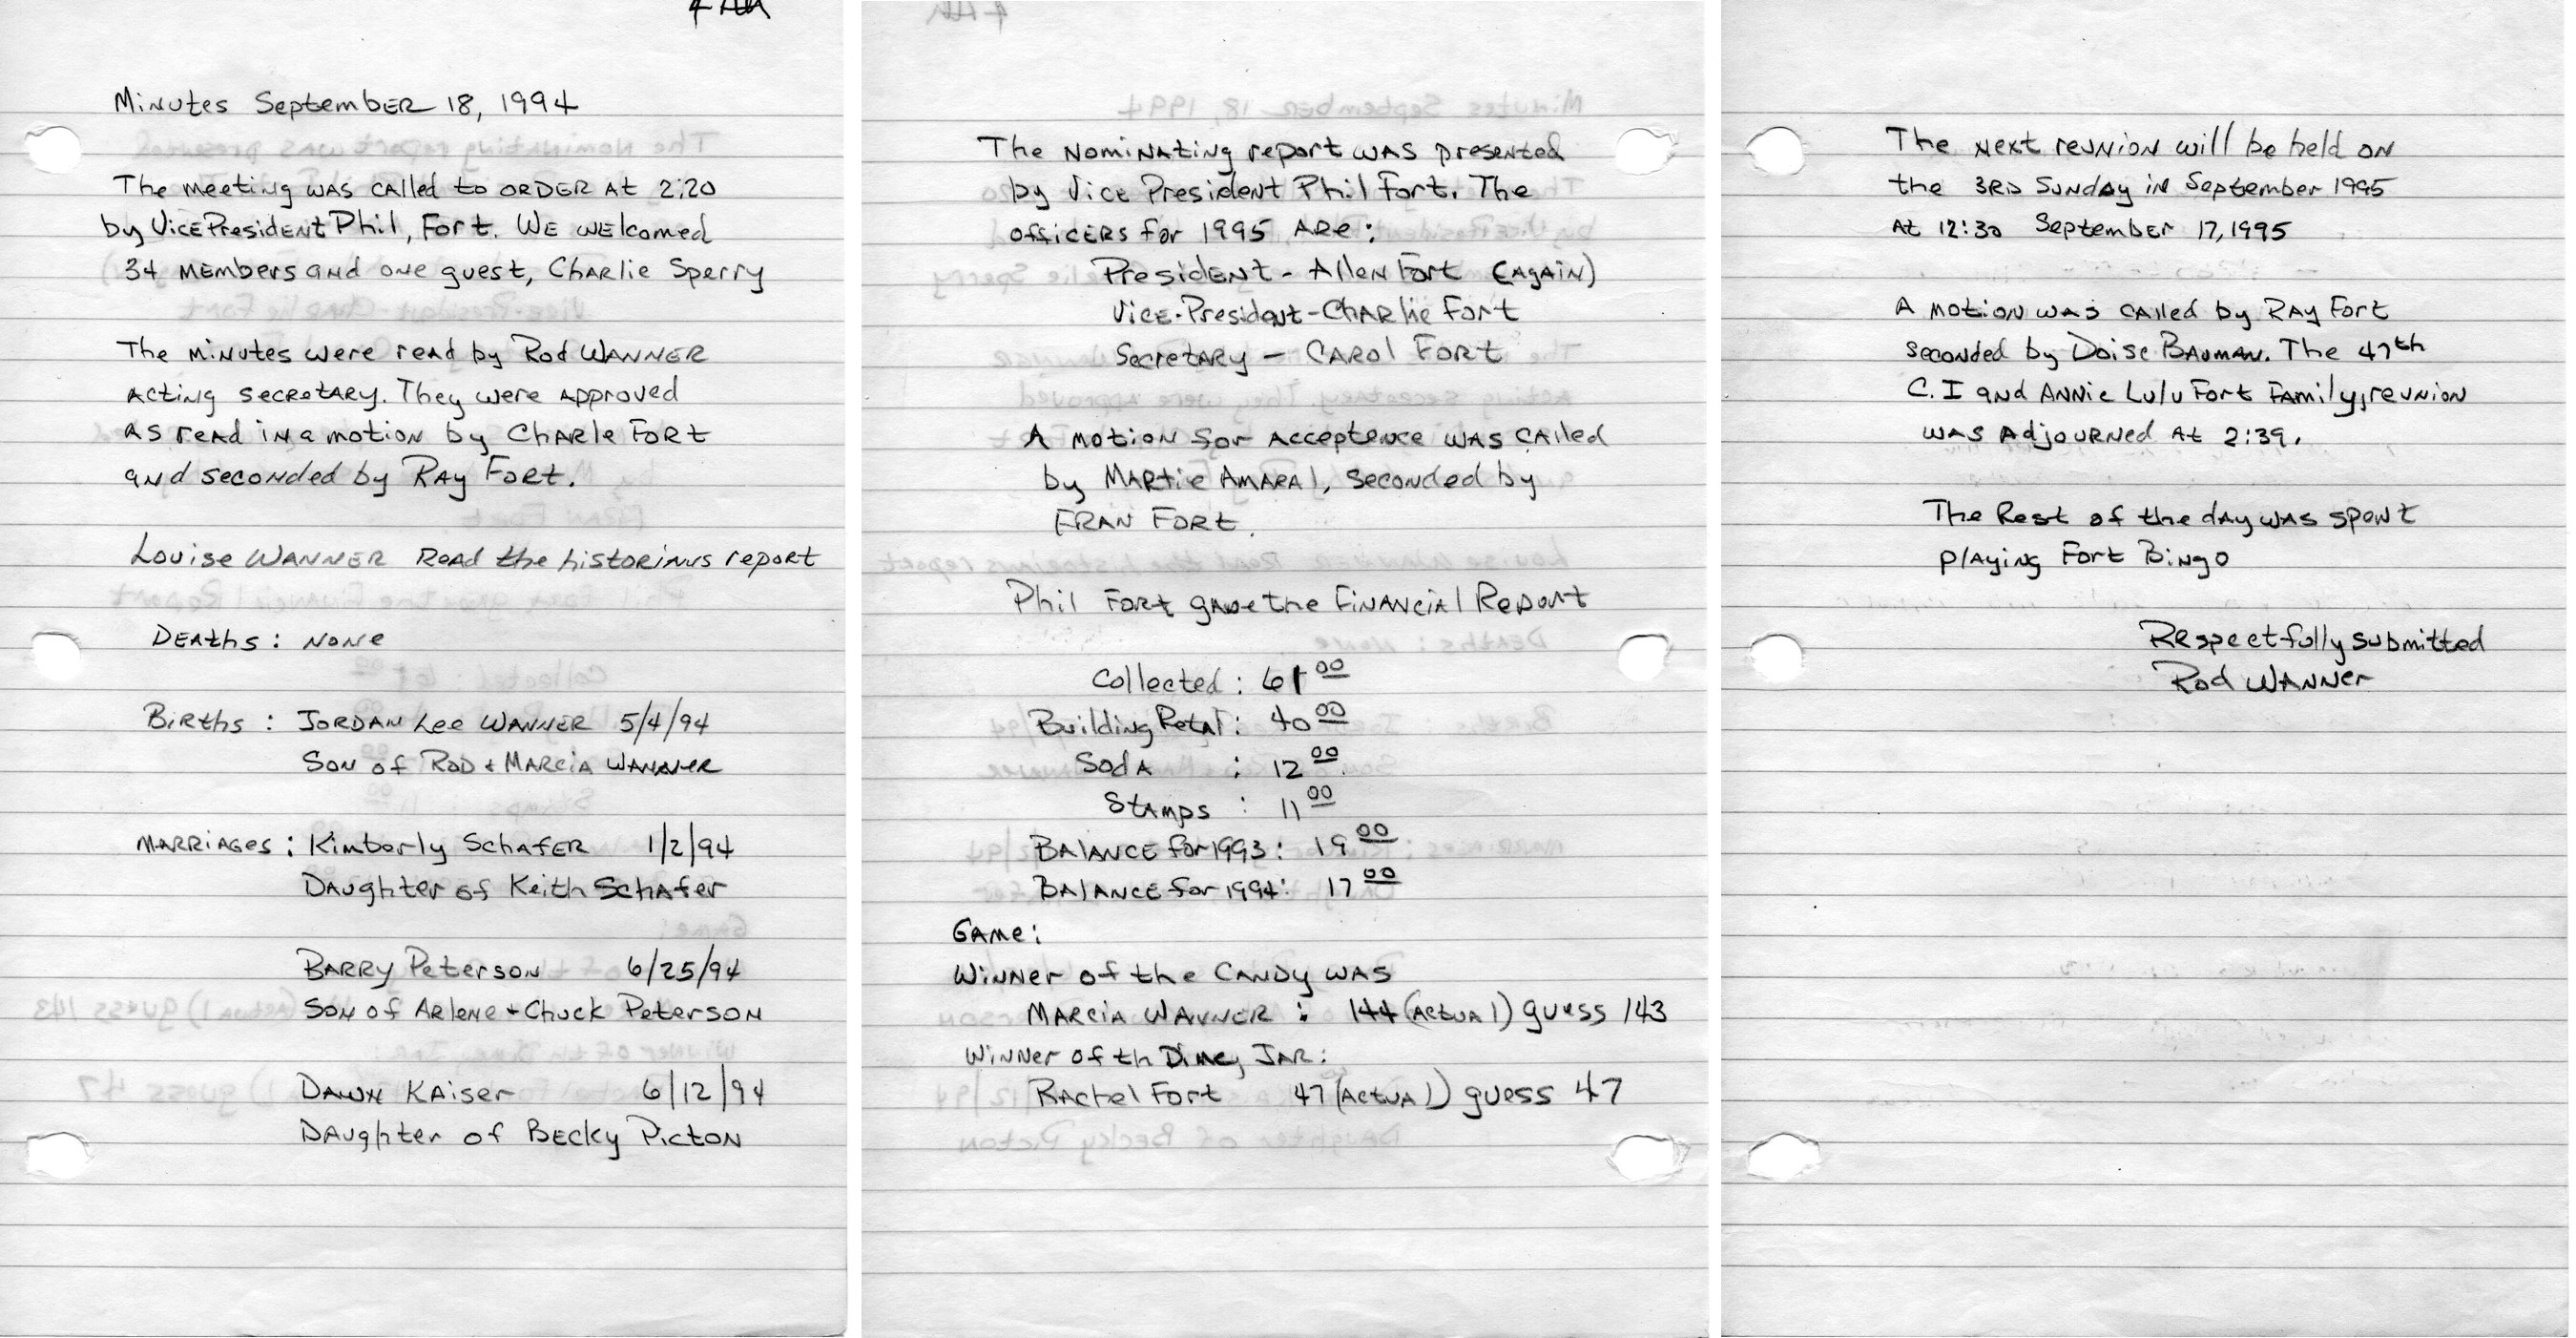 Minutes September 18, 1994
The meeting was called to order at 2:20
by Vice President Phil, Fort. We welcomed
34 members and one guest, Charlie Sperry
The minutes were read by Rod Wanner
acting secretary. They were approved
as read in a motion by Charle Fort
and seconded by Ray Fort.
Louise Wanner Read the historinus report
Deaths: None
Births: Jordan Lee Wanner 5/4/94
Son of Rod + Marcia Wanner
Marriages: Kimberly Schafer 1/2/94
Daughter of Keith Schafer
Barry Peterson 6/25/94
Son of Arlene + Chuck Peterson
Dawn Kaiser 6/12/94
Daughter of Becky Picton
The Nominating report was presented
by Vice President Phil Fort. The
officers for 1995 are:
President - Allen Fort (again)
Vice-President - Charlie Fort
Secretary - Carol Fort
A motion for acceptence was called
by Martie Amaral, seconded by
Fran Fort.
Phil Fort gave the Financial Report
Collected: 61 00
Building Retal: 40 00
Soda : 12 00
Stamps : 11 00
Balance for 1993: 19 00
Balance for 1994: 17 00
Game:
Winner of the Candy was
Marcia Wanner : 144 (actual) guess 143
Winner of th Dimey Jar:
Rachel Fort 47 (actual) guess 47
The next reunion will be held on
the 3rd Sunday in September 1995
At 12:30 September 17, 1995
A motion was called by Ray Fort
seconded by Doise Bauman. The 47th
C.I and Annie Lulu Fort Family reunion
was adjourned at 2:39.
The Rest of the day was spent
playing Fort Bingo
Respectfully submitted
Rod Wanner